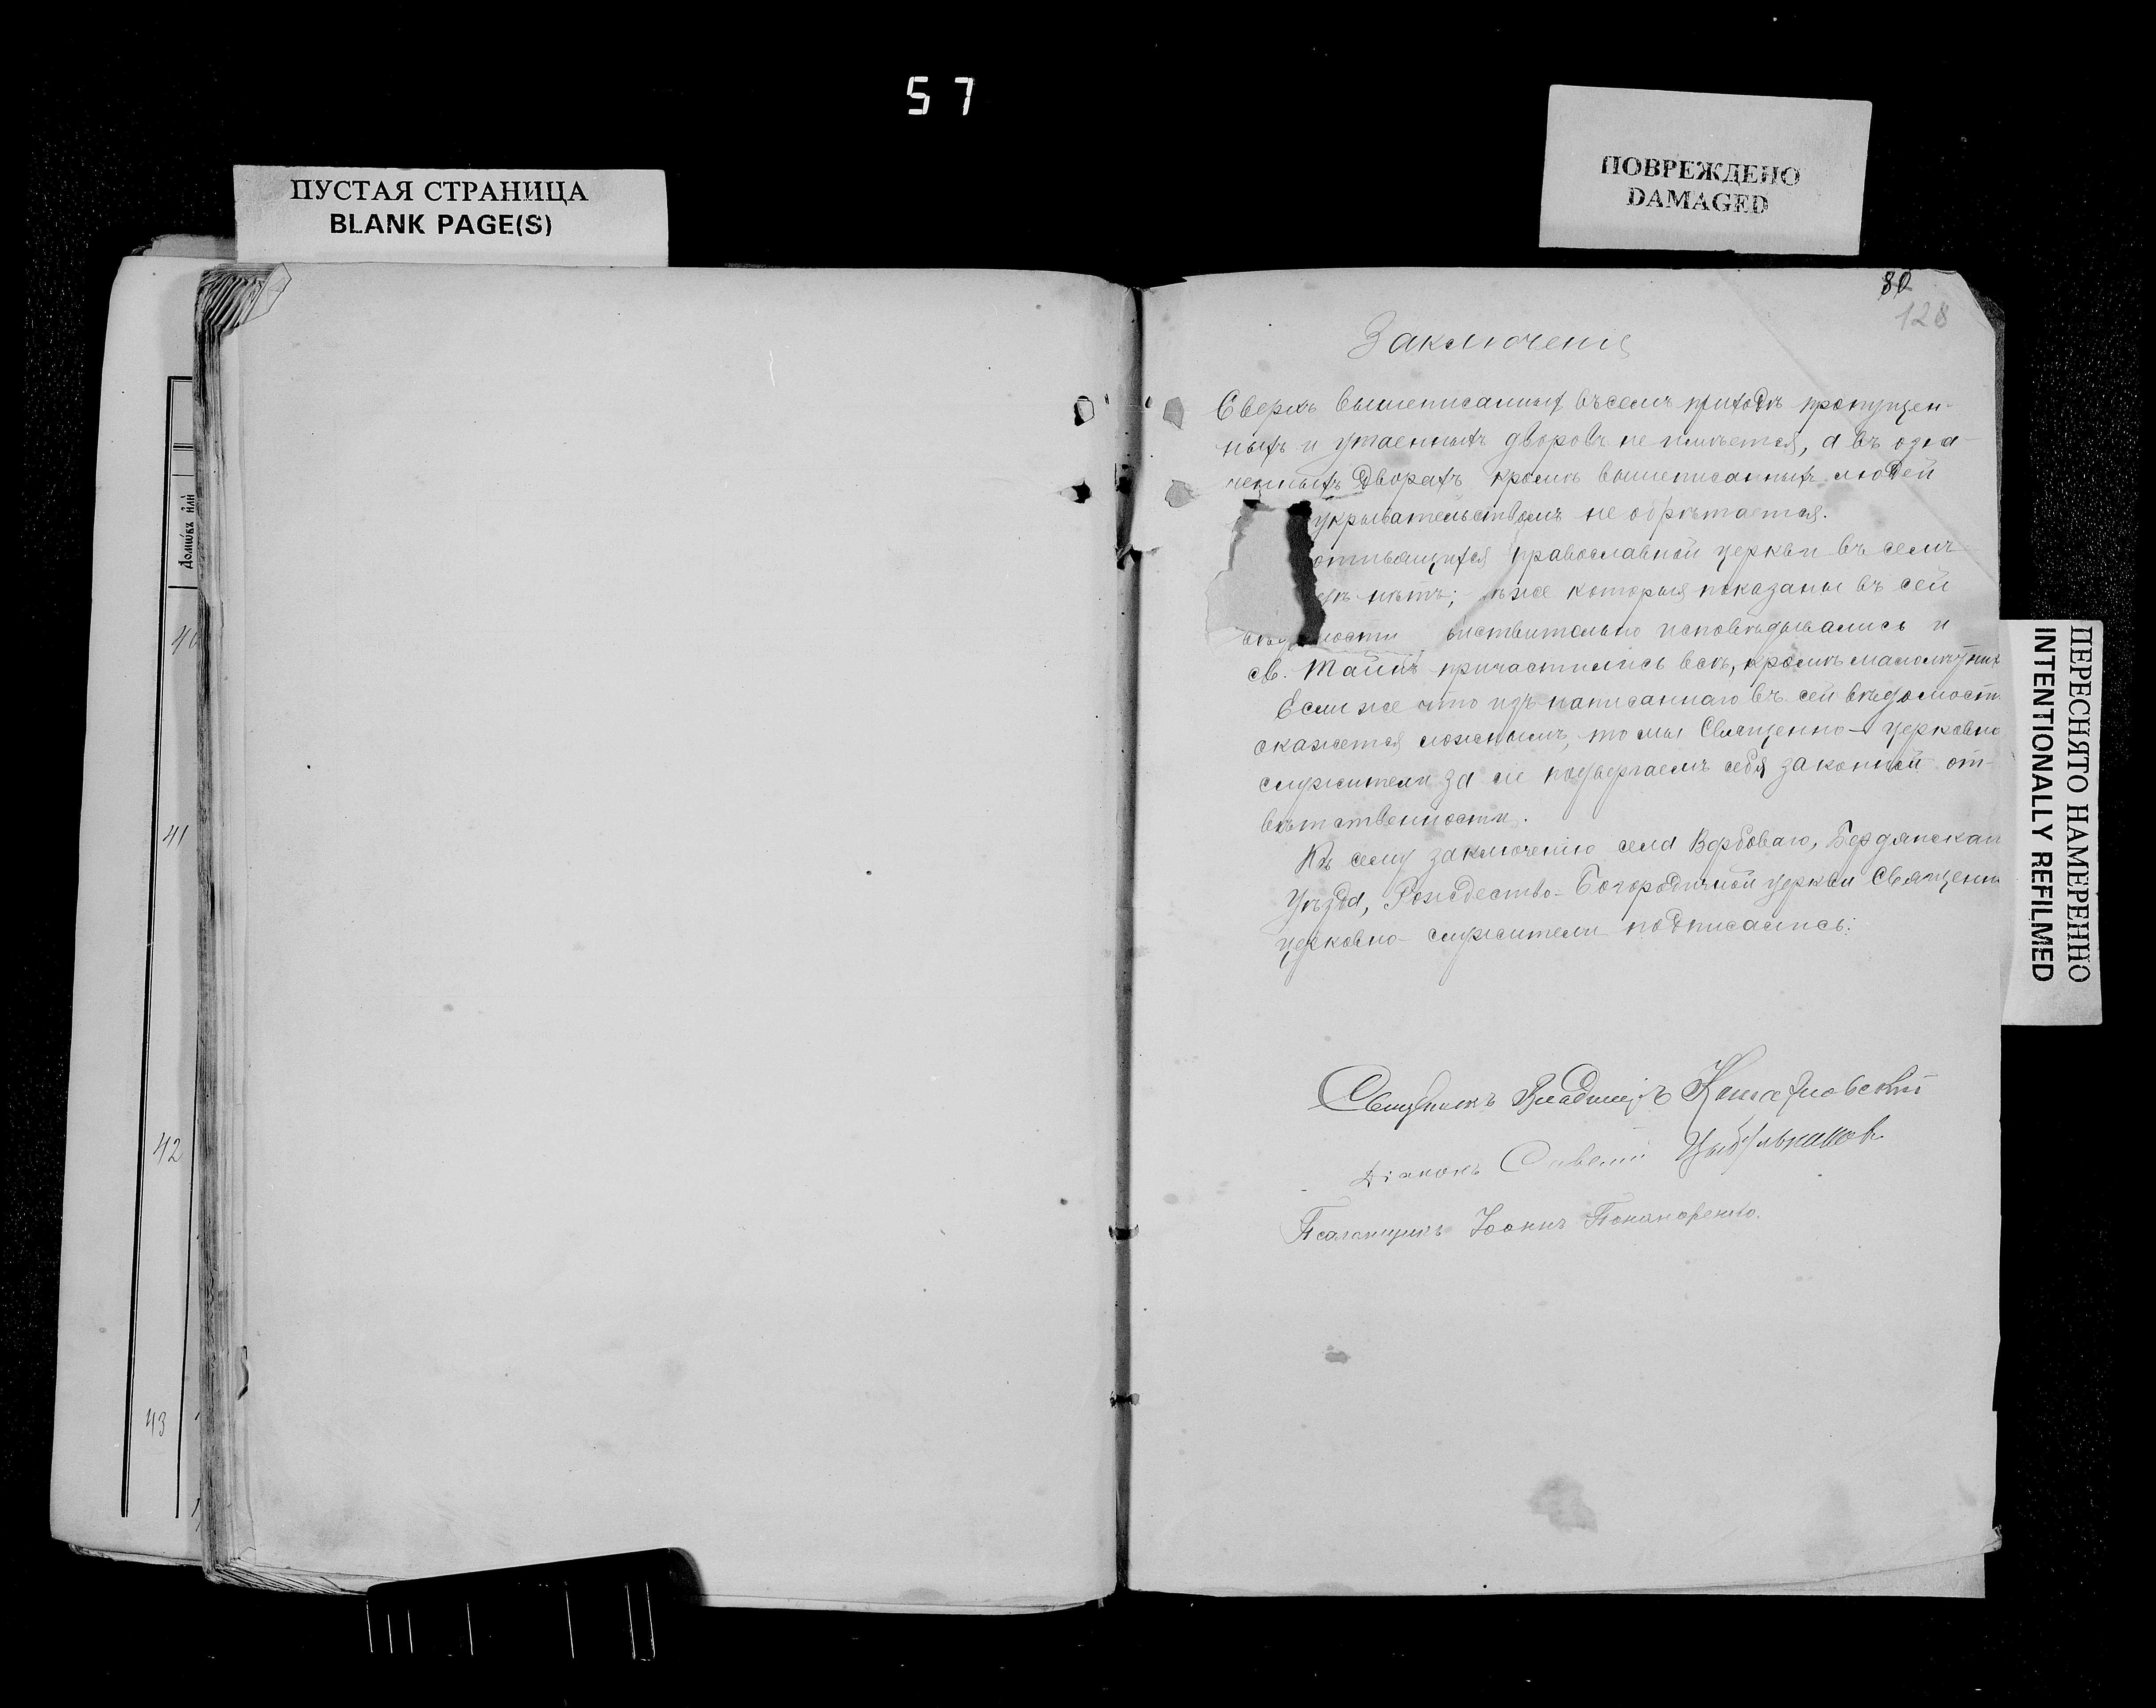 57
ПУСТАЯ СТРАНИЦА
BLANK PAGE(S)
ПОВРЕЖДЕНО
DAMAGED
80
128
Домѡвъ и҆лѝ
41
42
43
Заключеніе
Сверхъ вышеписанныхъ въ семъ приходѣ пропущен-
ныхъ и утаенныхъ дворовъ не имѣется, а въ озна-
ченныхъ дворахъ кромѣ вышеписанныхъ людей
укрывательствомъ не обрѣтается.
православной церкви въ семъ
нѣтъ; которыя показаны въ сей
исповѣдывались и
св. Таинъ причастились всѣ, кромѣ малолѣтних
Если же что изъ написаннаго въ сей вѣдомост
окажется ложнымъ, то мы Священно- церковно
служители за сіе подвергаемъ себя законной от-
вѣтственности.
Къ сему заключенію села Вербоваго, Бердянскаго
уѣзда, Рождество-Богородичной церкви Священно
церковно-служители подписались:
Священникъ Владиміръ
Діаконъ Савелій
Псаломщикъ Іоаннъ Пономаренко.
ПЕРЕСНЯТО НАМЕРЕННО
INTENTIONALLY REFILMED